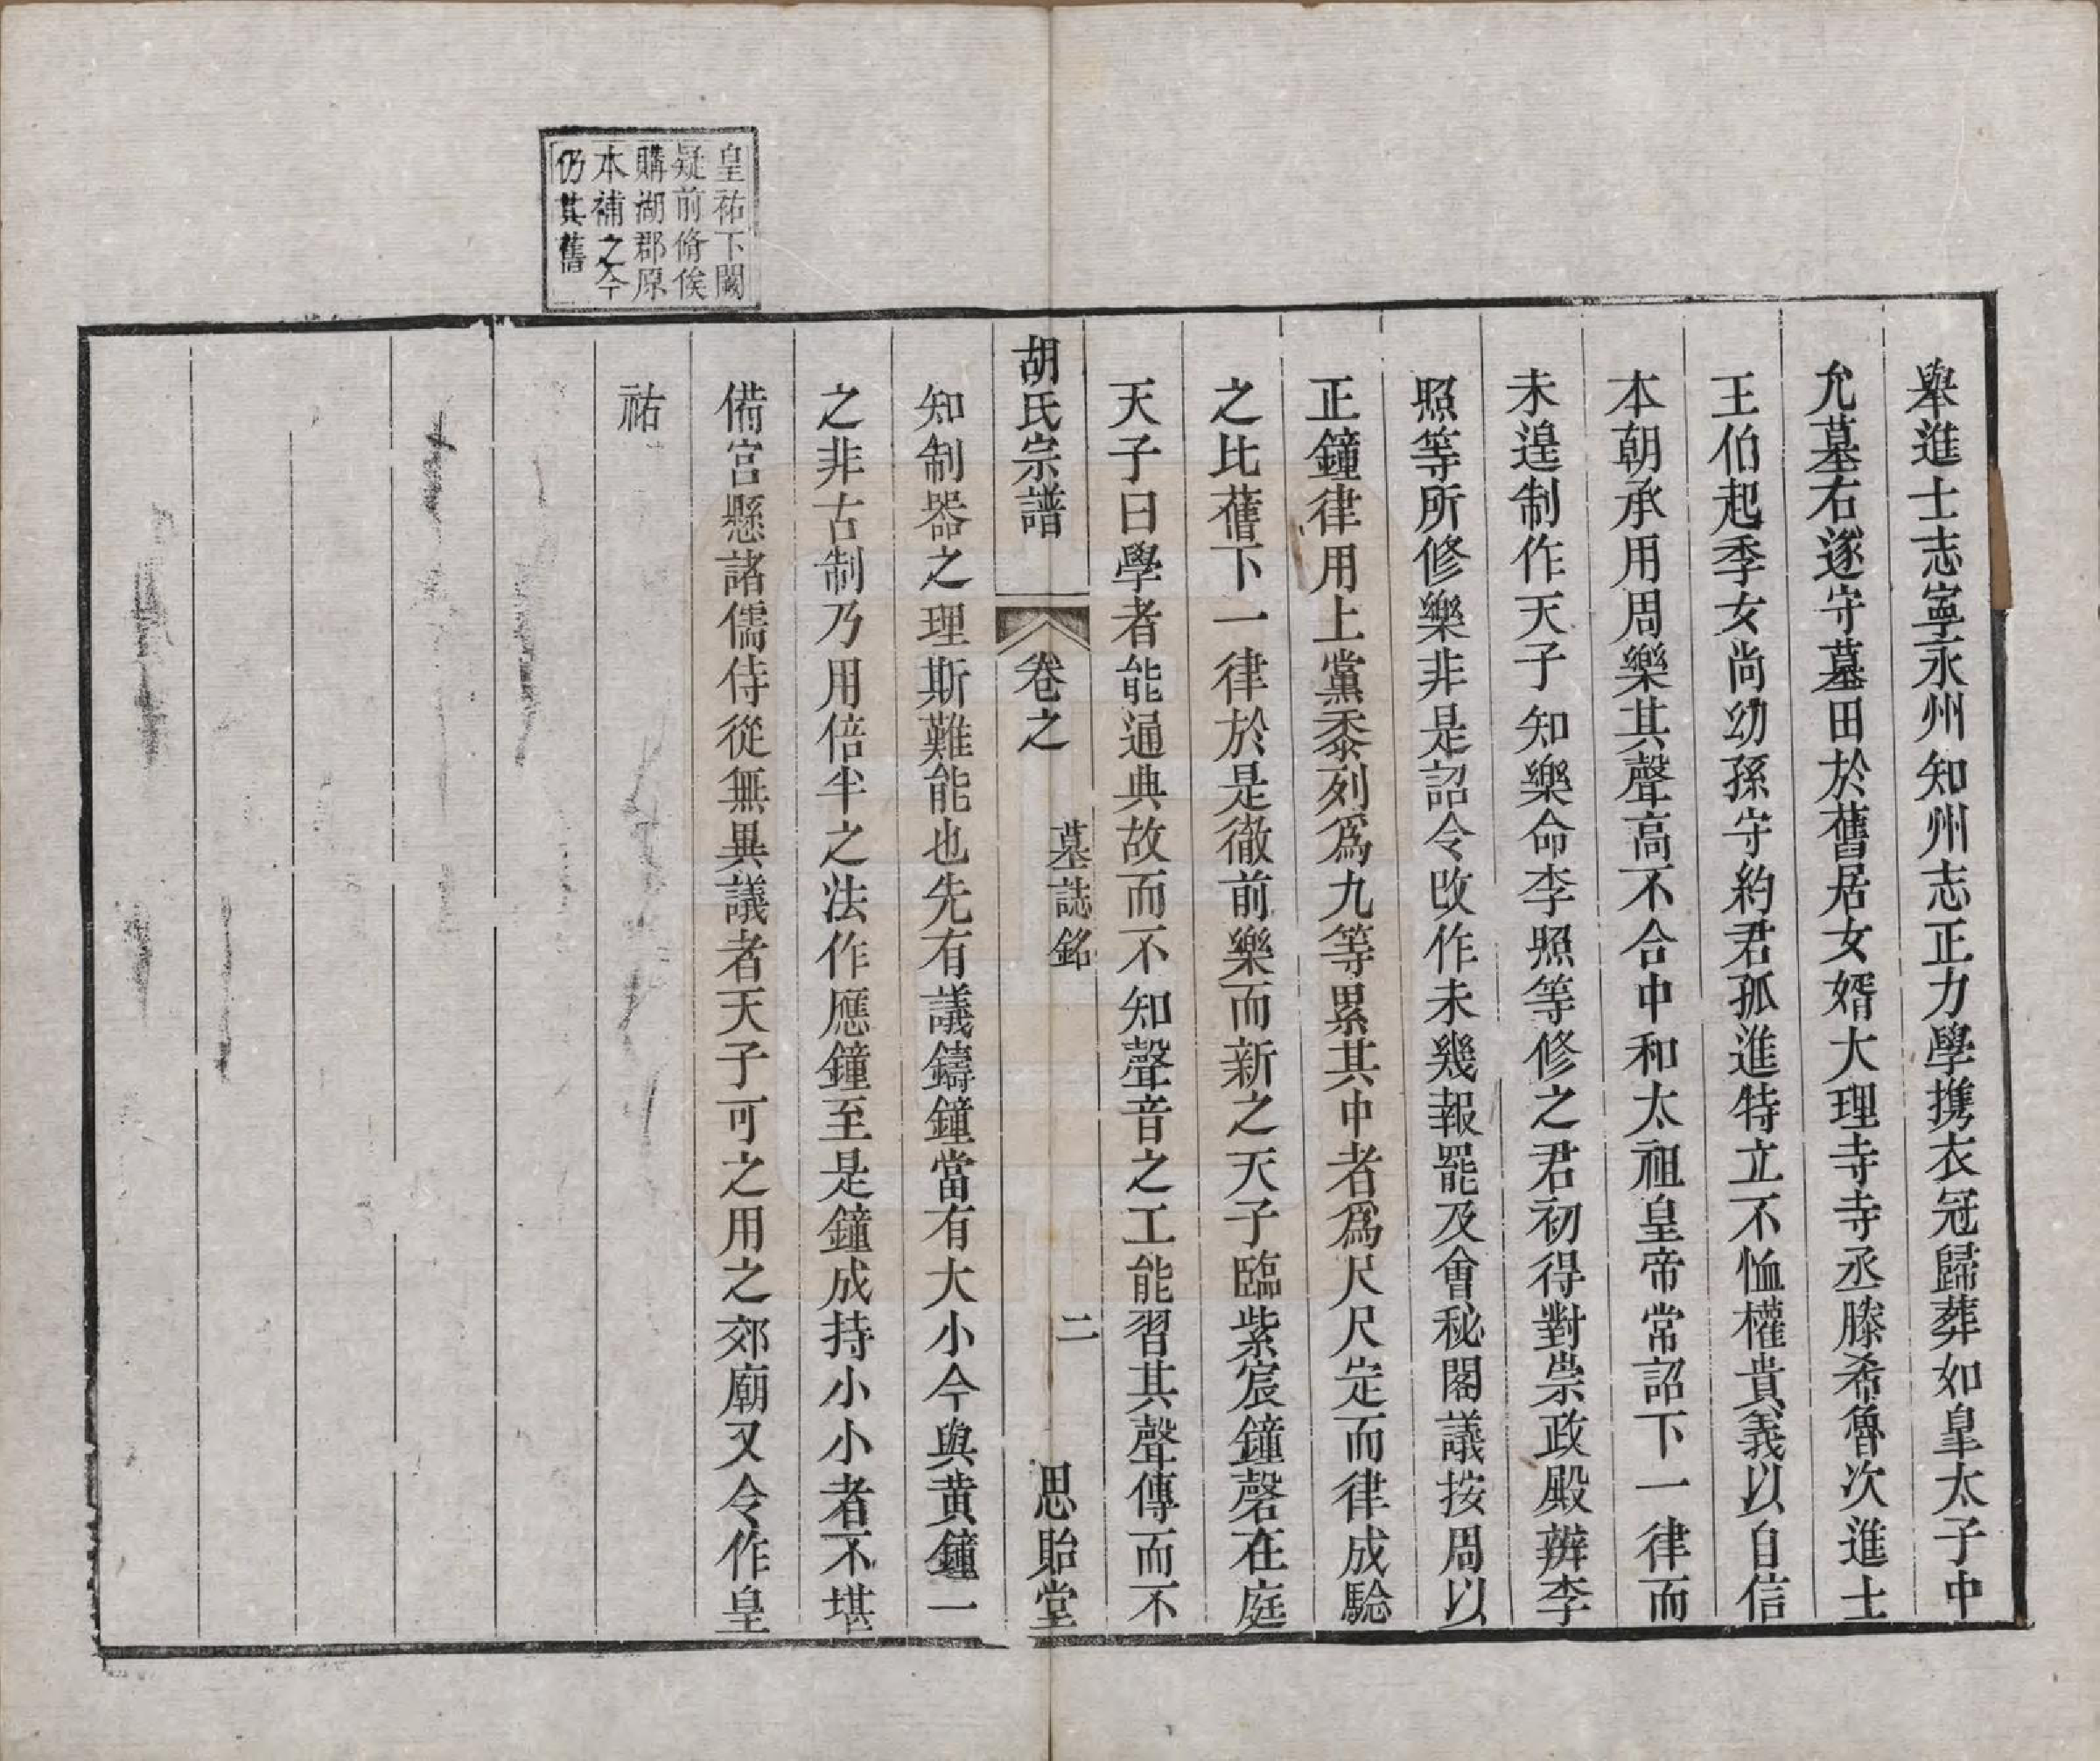 舉進士志寧永州知州志正力學携衣冠歸葬如皇太子中
允墓右遂守墓田於舊居女婿大理寺寺丞滕希魯次進士
王伯起季女尚幼孫守約君孤進特立不恤權貴義以自信
本朝承用周樂其聲高不合中和太祖皇帝常詔下一律而
未遑制作天子知樂命李照等修之君初得對崇政殿辨李
照等所修樂非是詔令改作未幾報罷及會秘閣議按周以
正鐘律用上黨黍列爲九等累其中者爲尺尺定而律成驗
之比舊下一律於是徹前樂而新之天子臨紫宸鐘磬在庭
天子曰學者能通典故而不知聲音之工能習其聲傳而不
胡氏宗譜 卷之 墓誌銘 二 思貽堂
知制器之理斯難能也先有議鑄鐘當有大小今與黃鐘一
之非古制乃用倍半之法作應鐘至是鐘成持小小者不堪
備宮懸諸儒侍從無異議者天子可之用之郊廟又令作皇
祐
皇祐下闕
疑前脩俟
購湖郡原
本補之今
仍其舊